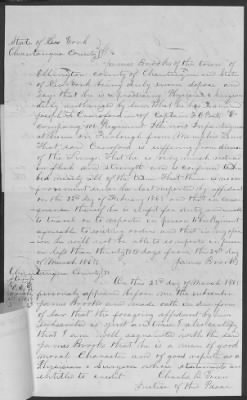 State of New York
Chautauqua County } ss
James Brooks of the town of
Ellington county of Chautauqua and State
of New York being duly sworn deposes and
Says that he is a practising Physician & Surgeon
duly authorized by law that he has examined
Joseph Crawford of Captain
company Regiment Illinois Infantry
at home on Furlough from
That said Crawford is suffering from disease
of the Lungs That he is very much reduced
in flesh and strength and is confined to his
bed nearly all of the time That there is no
improvement since he last reported by affidavit
on the 22d of February 1865 and that in conse-
quence thereof he is unfit for duty and unable
to travel or to report in person to his Regiment
agreeable to existing orders and that in my opin-
ion he will not be able to do so in
less than thirty days from the 23d day
of March 1865 James Brooks
Chautauqua County ss
On this 23d day of March 1865
personally appeared before me the within
James Brooks and made oath in due form
of law that the foregoing affidavit by him
subscribed is just and true I also certify
that I am well acquainted with the said
James Brooks that he is a man of good
moral Character and of good repute as a
Physician & Surgeon whose statements are
entitled to credit Charles B.
Justice of the Peace